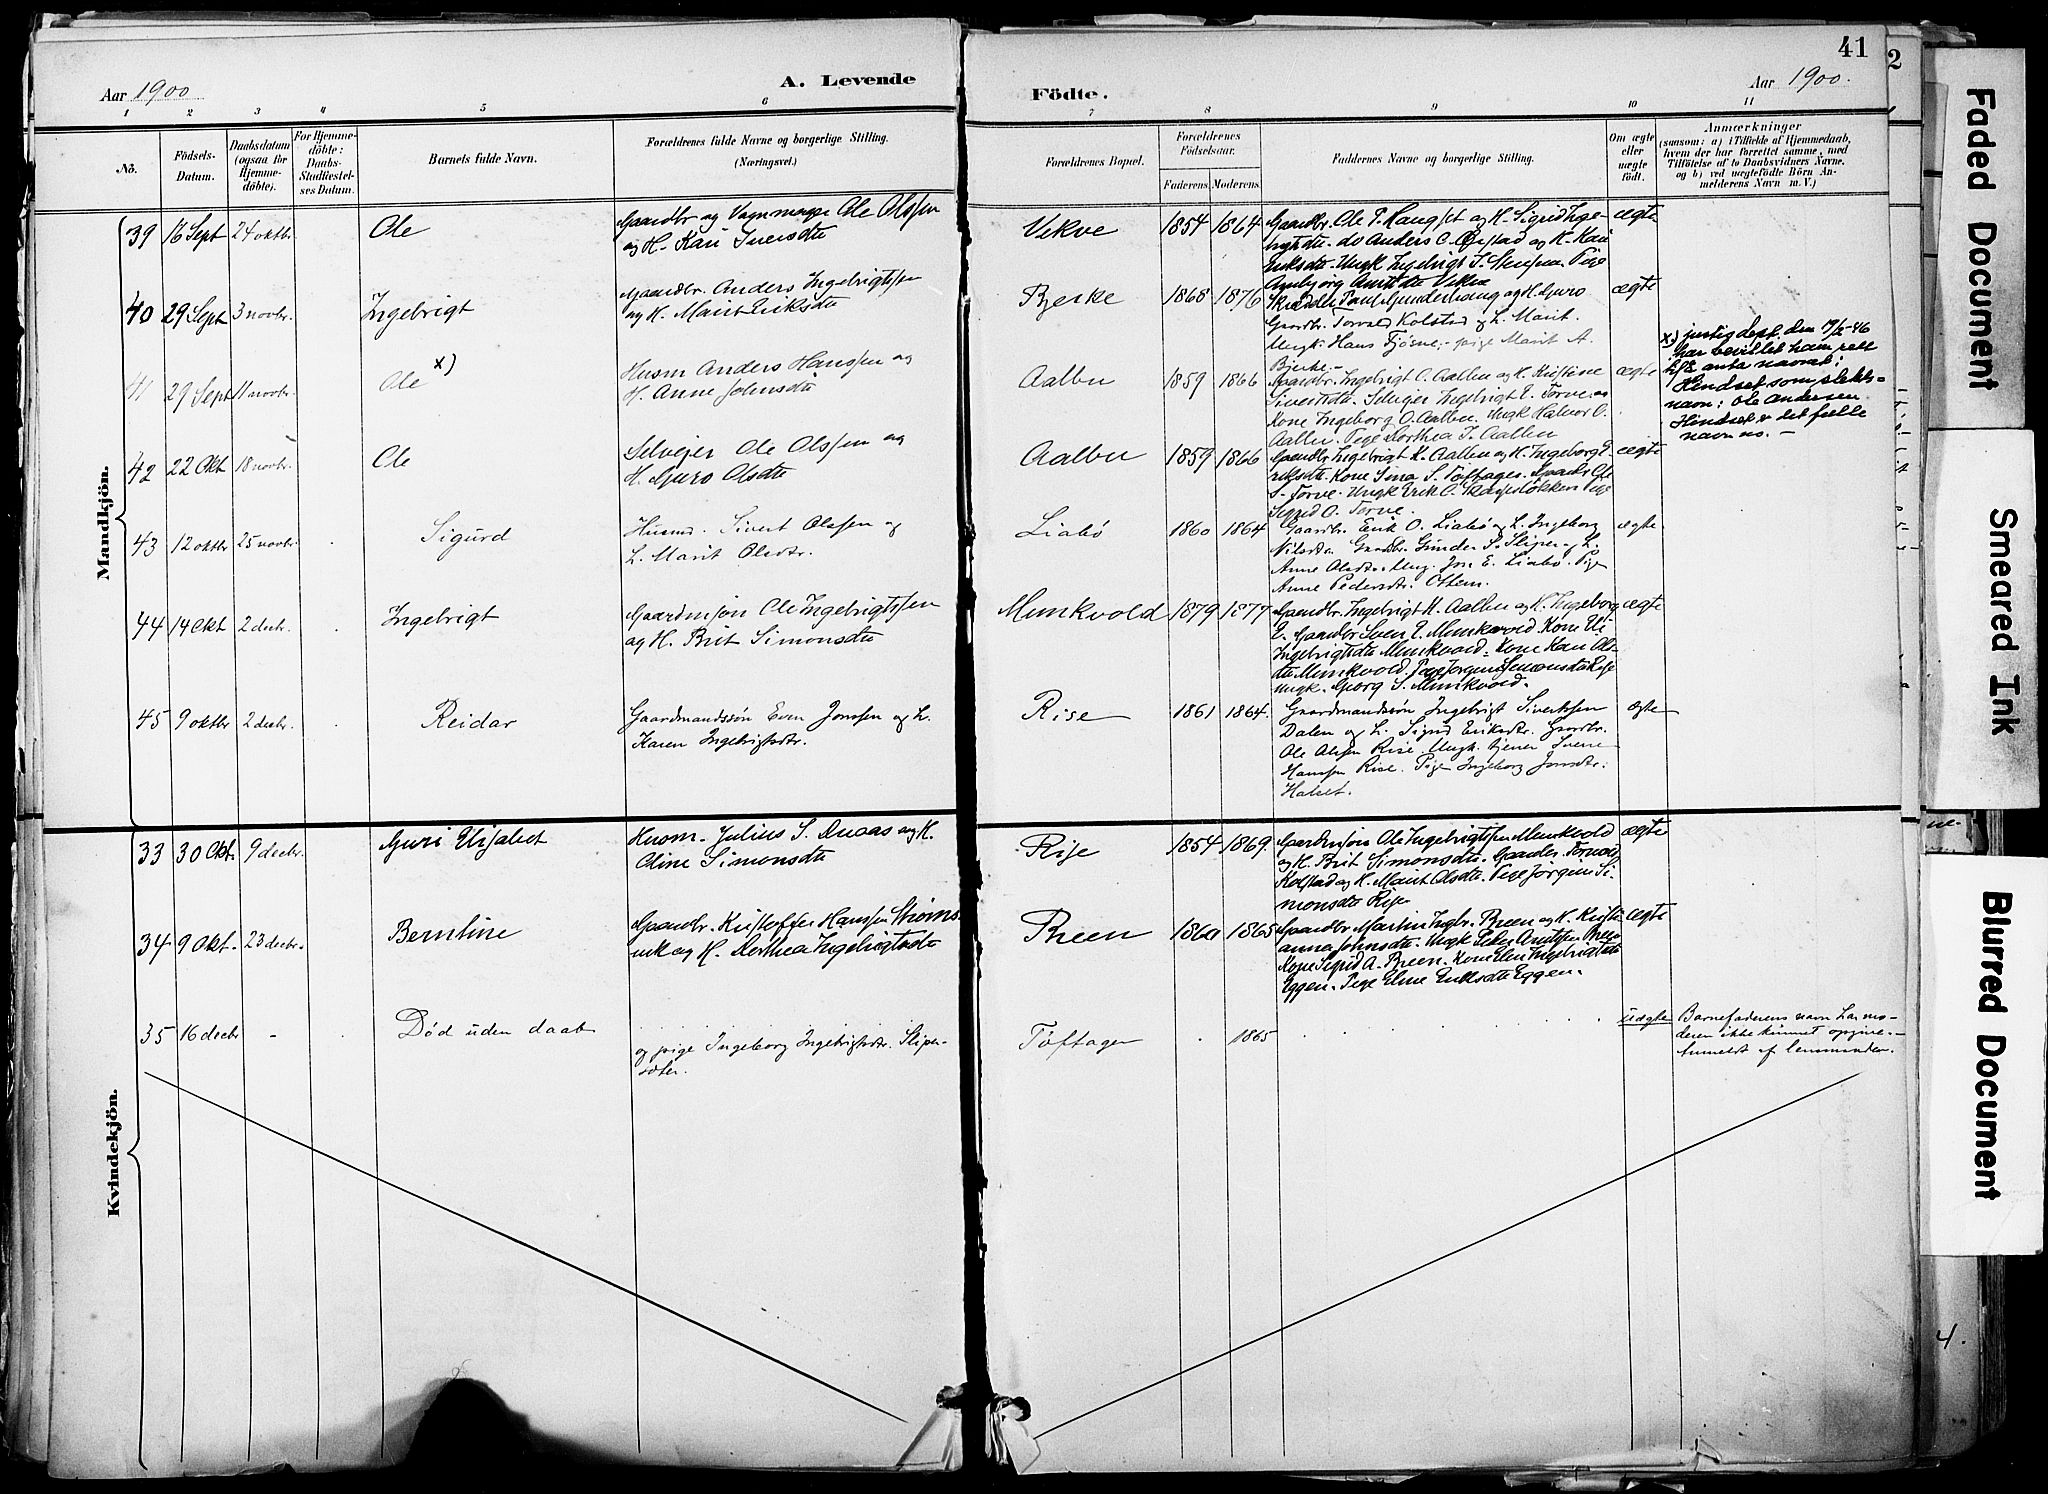 41
2
Aar 1900
A. Levende
Födte.
Aar 1900.
1 2 3 4 5 6 7 8 9 10 11
No.
Födsels-
Datum.
Daabsdatum
(ogsaa for
Hjemme-
döbte).
For Hjemme-
döbte:
Daabs-
Stadfæstel-
ses Datum.
Barnets fulde Navn.
Forældrenes fulde Navne og borgerlige Stilling.
(Næringsvei.)
Forældrenes Bopæl.
Forældrenes
Födselsaar.
Faderens. Moderens.
Faddernes Navne og borgerlige Stilling.
Om ægte
eller
uægte
födt.
Anmærkninger
(saasom: a) i Tilfælde af Hjemmedaab,
hvem der har forrettet samme, med
Tilföielse af to Daabsvidners Navne,
og b) ved uægtefödte Börn An-
melderens Navn m. V.)
Mandkjön.
39 16 Sept 24 oktbr. Ole
Gaardbr og Vognmager Ole Olssen
og H. Kari Iversdtr
Vekve 1854 1864
Gaardbr. Ole P. Haugset og H. Sigrid Inge-
brigtsdtr. do Anders C. og H. Kari
Eriksdtr. Ungk Ingebrigt Pige
Vekve
ægte
40 29 Sept 3 novbr. Ingebrigt
Gaardbr. Anders Ingebrigtssen
og H. Marit Eriksdtr
Bjerke 1868 1876
Skrædder Paul Gunderhaug og H. Guro
Gaardbr. Torvald Kolstad og L. Marit.
Ungk. Hans Fjösne, pige Marit A.
Bjerke.
ægte
41 29 Sept 11 novbr. Ole x)
Husm Anders Hanssen og
H. Anne Johnsdtr
Aalbu 1859 1866
Gaardbr. Ingebrigt O. Aalbu og H. Kristine
Sivertsdtr. Selveier Ingebrigt E. Torve.
Kone Ingeborg O. Aalbu. Ungk Halvor O.
Aalbu. Pige Dorthea J. Aalbu
ægte
x) justisdept. den 19/2-46
har bevilliet ham rett
til å anta navnet:
Hindset som slekts-
navn: Ole Andersen
Hindset er det fulle
navn nu. -
42 22 Okt 18 novbr. Ole
Selveier Ole Olssen og
H. Guro Olsdtr
Aalbu 1859 1866
Gaardbr Ingebrigt K. Aalbu og H. Ingeborg E-
riksdtr. Kone Sina S. Toftager. Gaardbr Ole
S. Torve. Ungk Erik O. Skarsløkken Pige
Sigrid O. Torve.
ægte
43 12 oktbr 25 novbr. Sigurd
Husmd. Sivert Olssen og
L. Marit Olsdtr.
Liabö 1860 1864
Gaardbr. Erik O. Liabö og L. Ingeborg
Nilsdtr. Gaardbr. Gunder S. Sliper og L.
Anne Olsdtr. Ung. Jon E. Liabö. Pige
Anne Pedersdtr. Ottem.
ægte
44 14 Okt 2 decbr. Ingebrigt
Gaardmsön Ole Ingebrigtssen
og H. Brit Simonsdtr
Munkvold 1879 1877
Gaardbr. Ingebrigt K. Aalbu og H. Ingeborg
E. Gaardbr Sven E. Munkvold. Kone
Ingebrigtsdtr Munkvold. Kone Kari Ols-
dtr Munkvold. Pige Jorgine Simonsdtr Rise
Ungk. Georg S. Munkvold.
ægte
45 9 oktbr 2 decbr. Reidar
Gaardmandssön Even Jonssen og L.
Karen Ingebrigtsdtr.
Rise 1861 1864.
Gaardmandssön Ingebrigt Sivertssen
Dalen og L. Sigrid Eriksdtr. Gaardbr.
Ole Olssen Rise. Ungk. tjener
Hanssen Rise. Pige Ingeborg Jonsdtr.
Halset.
ægte
Kvindekjön.
33 30 Okt. 9 decbr. Guri Elisabet
Husm. Julius S. Duaas og H.
Oline Simonsdtr
Rise 1854 1869.
Gaardmsön Ole Ingebrigtssen Munkvold
og H. Brit Simonsdtr. Gaardbr. Torvald
Kolstad og H. Marit Olsdtr. Pige Jörgine Si-
monsdtr Rise
ægte
34 9 Okt. 23 decbr. Berntine
Gaardbr. Kristoffer Hanssen Ströms-
og H. Dorthea Ingebrigtsdtr
Breen 1860 1865
Gaardbr Martin Ingbr. Breen og H. Kristi-
anna Johnsdtr. Ungk Peder Breen
Kone Sigrid A. Breen. Kone Elen Ingebrigtsdtr
Eggen. Pige Eline Eriksdtr Eggen.
ægte
35 16 decbr - Död uden daab
og pige Ingeborg Ingebrigtsdtr. Sliper-
sæter.
Toftager 1865
uægte
Barnefaderens navn har mo-
deren ikke kunnet opgive.-
Anmeldt af lensmanden.
Faded Document
Smeared Ink
Blurred Document
4.